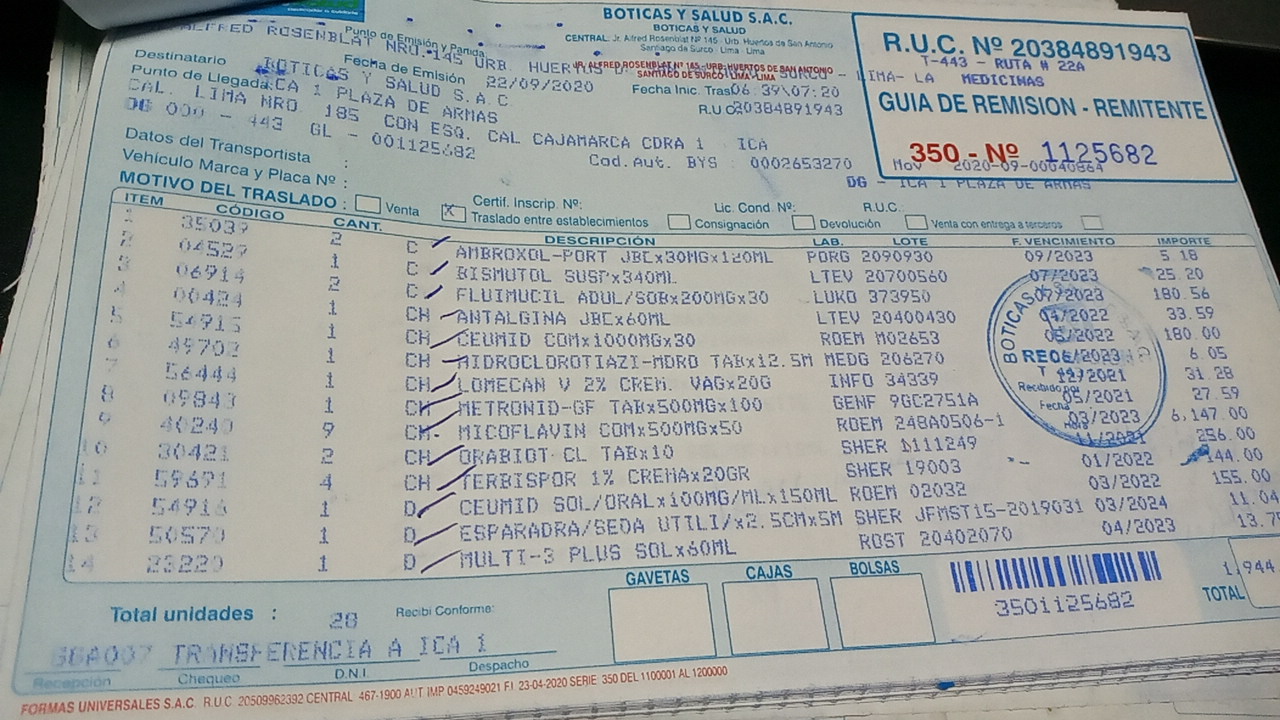 BOTICAS Y SALUD S.A.C.
BOTICAS Y SALUD
CENTRAL: Jr. Alfred Rosenblat Nº 145 - Urb. Huertos de San Antonio
Santiago de Surco - Lima - Lima
R.U.C. Nº 20384891943
T-443 - RUTA # 22A
LIMA- LA MEDICINAS
GUIA DE REMISION - REMITENTE
350 - Nº 1125682
Mov 2020-09-00040864
DG - ICA 1 PLAZA DE ARMAS
Punto de Emisión y Partida
ALFRED ROSENBLAT NRO.145 URB. HUERTOS D
JR. ALFRED ROSENBLAT Nº 145 - URB. HUERTOS DE SAN ANTONIO
SANTIAGO DE SURCO - LIMA - LIMA
Destinatario BOTICAS Y SALUD S.A.C
Fecha de Emisión 22/09/2020
Fecha Inic. Tras 06:39:07:20
R.U.C 20384891943
Punto de Llegada: ICA 1 PLAZA DE ARMAS
CAL. LIMA NRO 185 CON ESQ. CAL CAJAMARCA CDRA 1 ICA
DG 000 - 443 GL - 001125682
Cod.Aut. BYS 0002653270
Datos del Transportista :
Vehículo Marca y Placa Nº :
Certif. Inscrip. Nº: Lic. Cond. Nº: R.U.C.
MOTIVO DEL TRASLADO : Venta X Traslado entre establecimientos Consignación Devolución Venta con entrega a terceros
ITEM CÓDIGO CANT. DESCRIPCIÓN LAB. LOTE F. VENCIMIENTO IMPORTE
1 35039 2 C AMBROXOL-PORT JBCx30MGx120ML PORG 2090930 09/2023 5.18
2 04529 1 C BISMUTOL SUSPx340ML LTEV 20700560 07/2023 25.20
3 06914 2 C FLUIMUCIL ADUL/SOBx200MGx30 LUKO 373950 07/2023 180.56
4 00424 1 CH ANTALGINA JBCx60ML LTEV 20400430 04/2022 33.59
5 54915 1 CH CEUMID COMx1000MGx30 ROEM M02653 05/2022 180.00
6 49702 1 CH HIDROCLOROTIAZI-MDRO TABx12.5M MEDG 206270 06/2023 6.05
7 56444 1 CH LOMECAN V 2% CREM. VAGx20G INFO 34339 12/2021 31.28
8 09843 1 CH METRONID-GF TABx500MGx100 GENF 9GC2751A 05/2021 27.59
9 40240 9 CH MICOFLAVIN COMx500MGx50 ROEM 248A0506-1 03/2023 6,147.00
10 30421 2 CH ORABIOT CL TABx10 SHER D111249 11/2021 256.00
11 59691 4 CH TERBISPOR 1% CREMAx20GR SHER 19003 01/2022 144.00
12 54916 1 D CEUMID SOL/ORALx100MG/MLx150ML ROEM 02032 03/2022 155.00
13 50570 1 D ESPARADRA/SEDA UTILI/x2.5CMx5M SHER JFMST15-2019031 03/2024 11.04
14 23220 1 D MULTI-3 PLUS SOLx60ML ROST 20402070 04/2023 13.7
BOTICAS
Recibido por
Fecha
Hora
GAVETAS CAJAS BOLSAS
3501125682
TOTAL 1,944
Total unidades : 28 Recibi Conforme:
GGA007 TRANSFERENCIA A ICA 1
Recepción Chequeo D.N.I. Despacho
FORMAS UNIVERSALES S.A.C. R.U.C. 20509962392 CENTRAL 467-1900 AUT IMP 0459249021 F.I. 23-04-2020 SERIE 350 DEL 1100001 AL 1200000